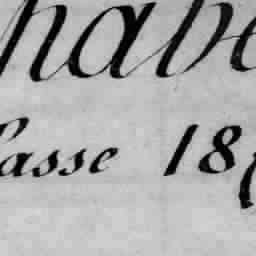 habe
asse 18